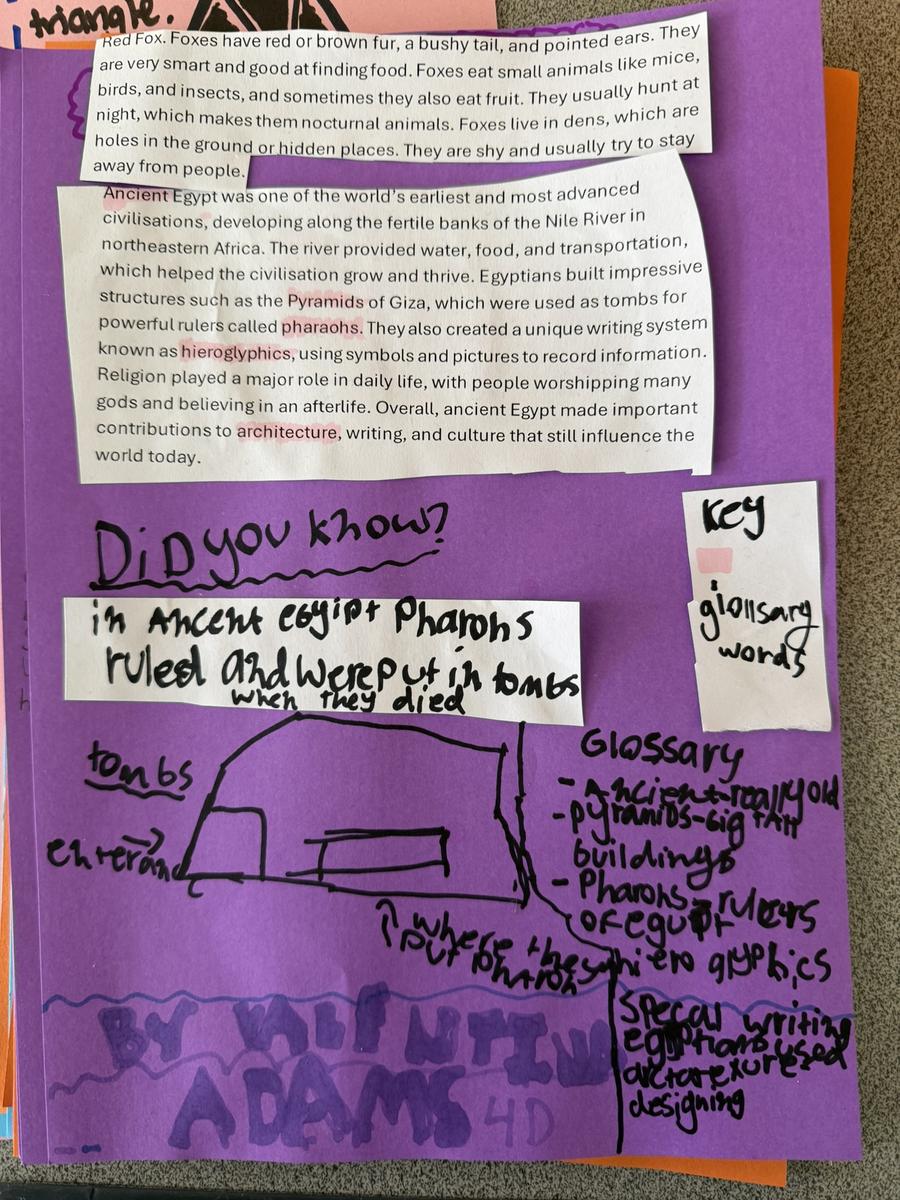 triangle.
Red Fox. Foxes have red or brown fur, a bushy tail, and pointed ears. They
are very smart and good at finding food. Foxes eat small animals like mice,
birds, and insects, and sometimes they also eat fruit. They usually hunt at
night, which makes them nocturnal animals. Foxes live in dens, which are
holes in the ground or hidden places. They are shy and usually try to stay
away from people.
Ancient Egypt was one of the world's earliest and most advanced
civilisations, developing along the fertile banks of the Nile River in
northeastern Africa. The river provided water, food, and transportation,
which helped the civilisation grow and thrive. Egyptians built impressive
structures such as the Pyramids of Giza, which were used as tombs for
powerful rulers called pharaohs. They also created a unique writing system
known as hieroglyphics, using symbols and pictures to record information.
Religion played a major role in daily life, with people worshipping many
gods and believing in an afterlife. Overall, ancient Egypt made important
contributions to architecture, writing, and culture that still influence the
world today.
Did you know?
in Ancent egyipt Pharohs
ruled and were put in tombs
when they died
Key
glollsary
words
tombs
enterance
↑ where they
put pharoh
Glossary
- Ancient-really old
- pyramids-big tall
buildings
- Pharohs-rulers
of egupt
hieroglyphics
Specal writing
egiptians used
designing
BY VALENTINO
ADAMS 4D